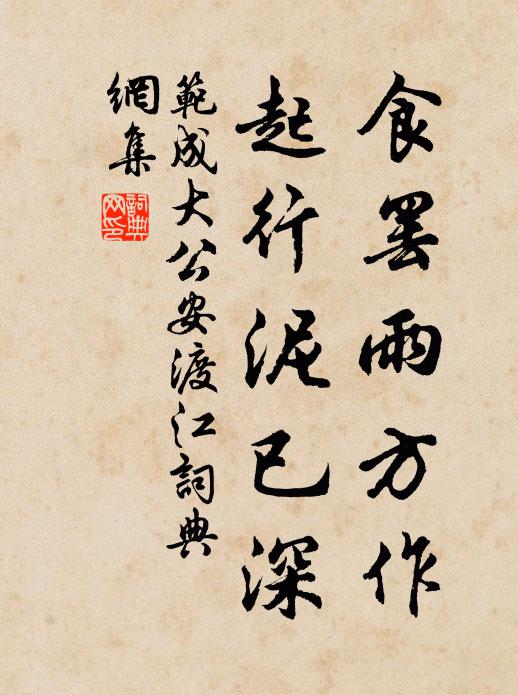 食罢雨方作
起行泥已深
範成大公安渡江詞典
網集
詞典
网印